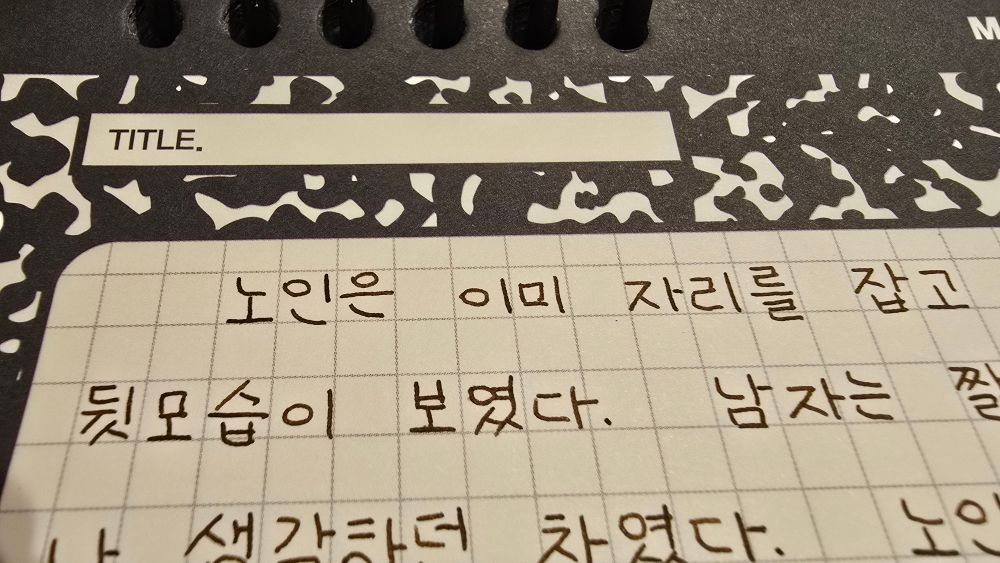 TITLE.
노인은 이미 자리를 잡고
뒷모습이 보였다. 남자는
생각하던 차였다.